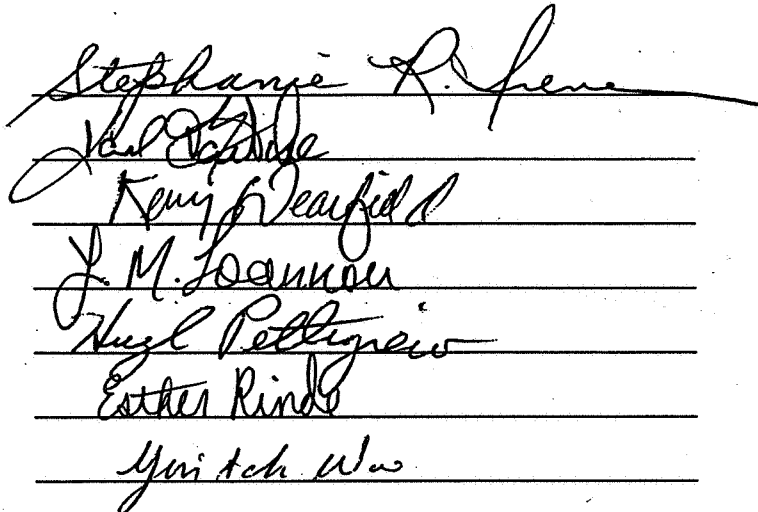 Stephanie R. Irene
Karl
Kerry Dearfield
Y. M. Ioannou
Hugh Pettigrew
Esther Rinde
Yin Tak Woo